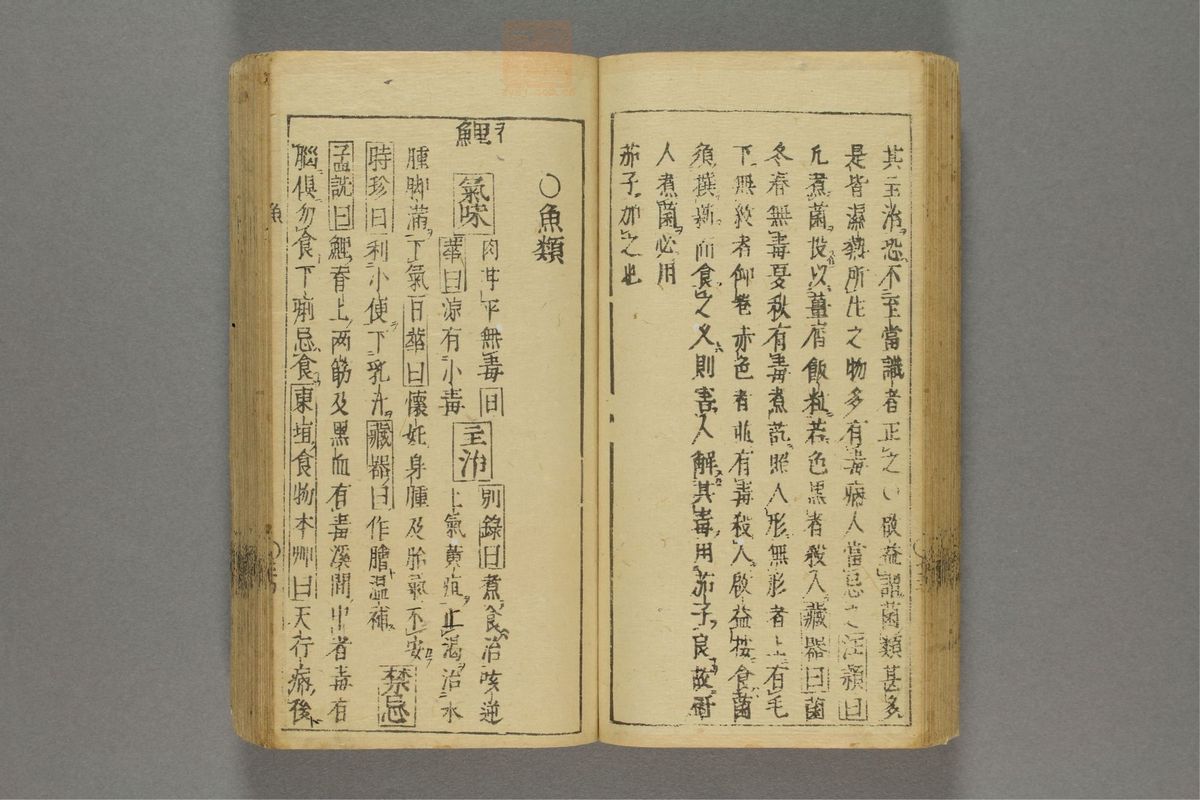 其主治恐不至當識者正之○啟益謂菌類甚多
是皆濕熱所生之物多有毒病人當忌之汪穎曰
凡煮菌投以薑屑飯粒若色黒者殺人藏器曰菌
冬春無毒夏秋有毒煮訖照人影無影者上有毛
下無紋者仰卷赤色者並有毒殺人啟益按食菌
須撰新而食之又則害人解其毒用茄子良故
人煮菌必用
茄子加之也
○魚類
鯉
氣味 肉甘平無毒日
華曰涼有小毒 主治 別錄曰煮食治咳逆
上氣黄疸止渴治水
腫脚滿下氣日華曰懷妊身腫及胎氣不安
時珍曰利小便下乳汁藏器曰作膾温補 禁忌
孟詵曰鯉脊上两筋及黒血有毒溪澗中者毒有
腦俱勿食下痢忌食東垣食物本艸曰天行病後
魚